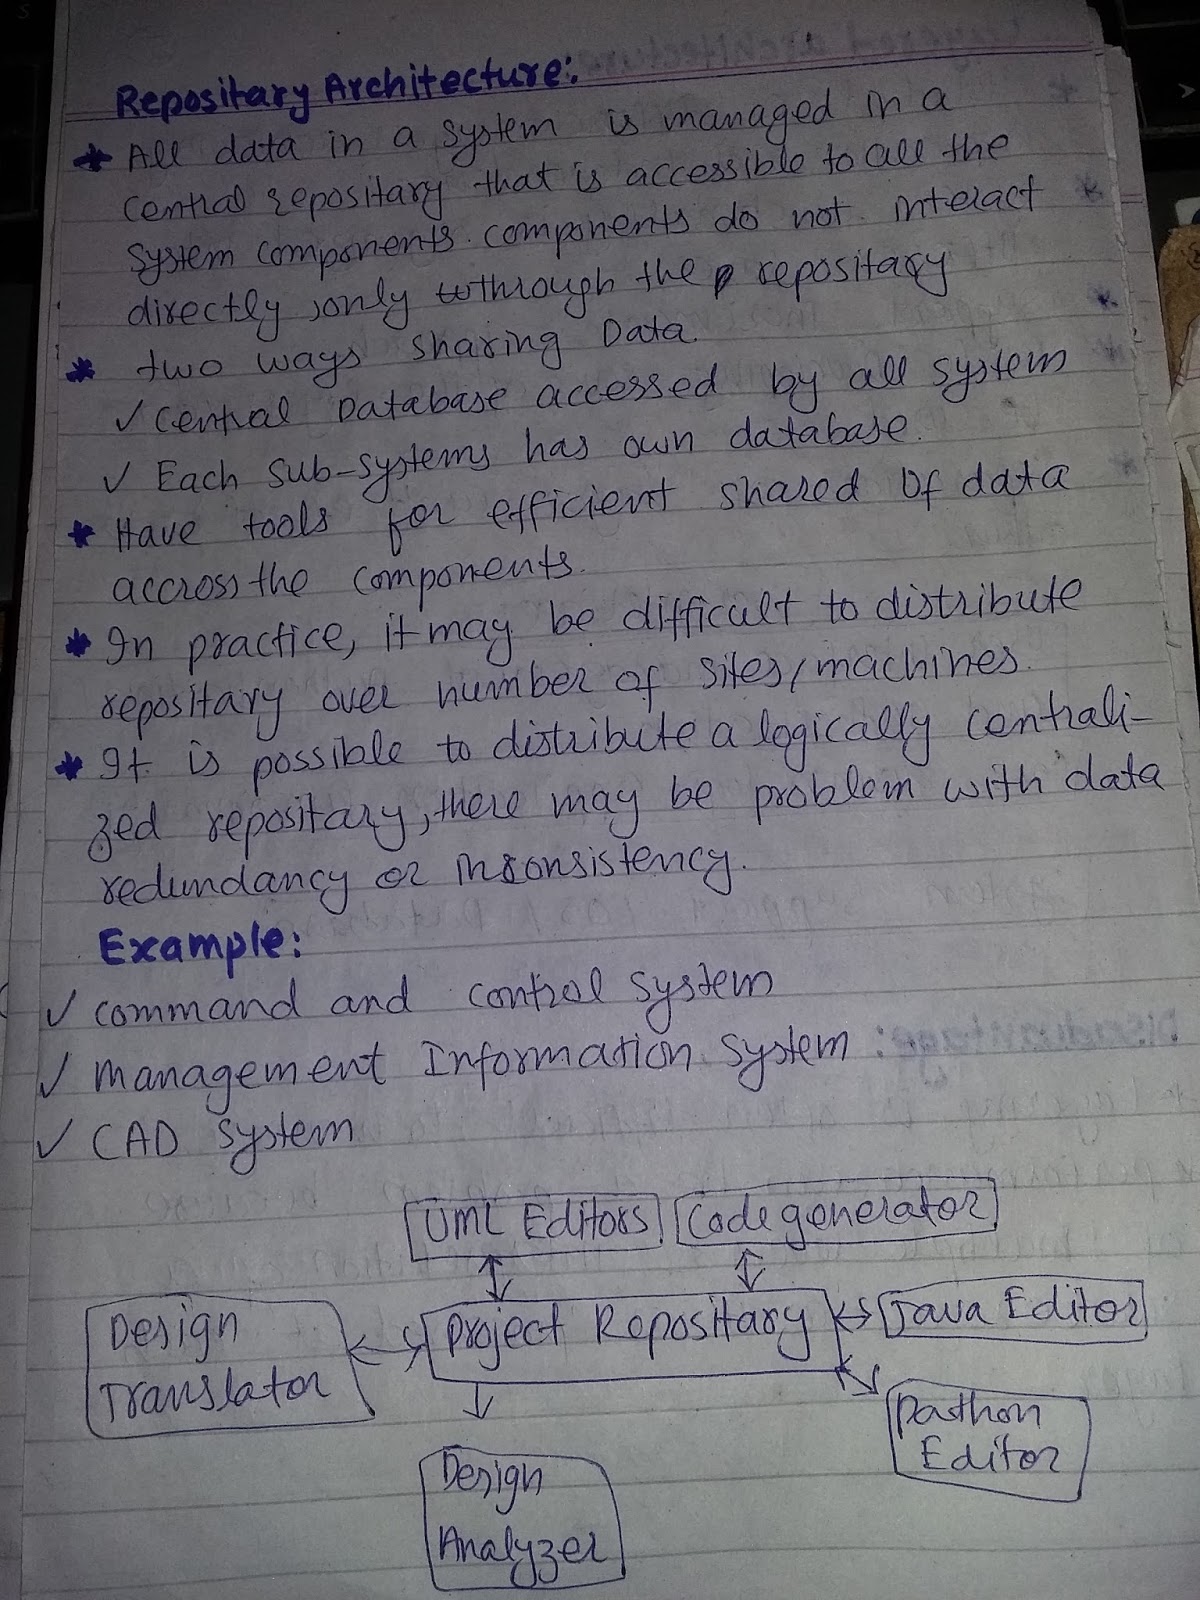 Repositary Architecture:
* All data in a system is managed in a
central repositary that is accessible to all the
system components. components do not interact
directly, only through the repositary
* two ways sharing Data.
✓ Central Database accessed by all system
✓ Each sub-systems has own database.
* Have tools for efficient shared of data
accross the components.
* In practice, it may be difficult to distribute
repositary over number of sites/machines.
* It is possible to distribute a logically centrali-
zed repositary, there may be problem with data
redundancy or inconsistency.
Example:
✓ command and control system
✓ management Information system
✓ CAD system
UML Editors
Code generator
Design
Translator
Project Repositary
Java Editor
pasthon
Editor
Design
Analyzer